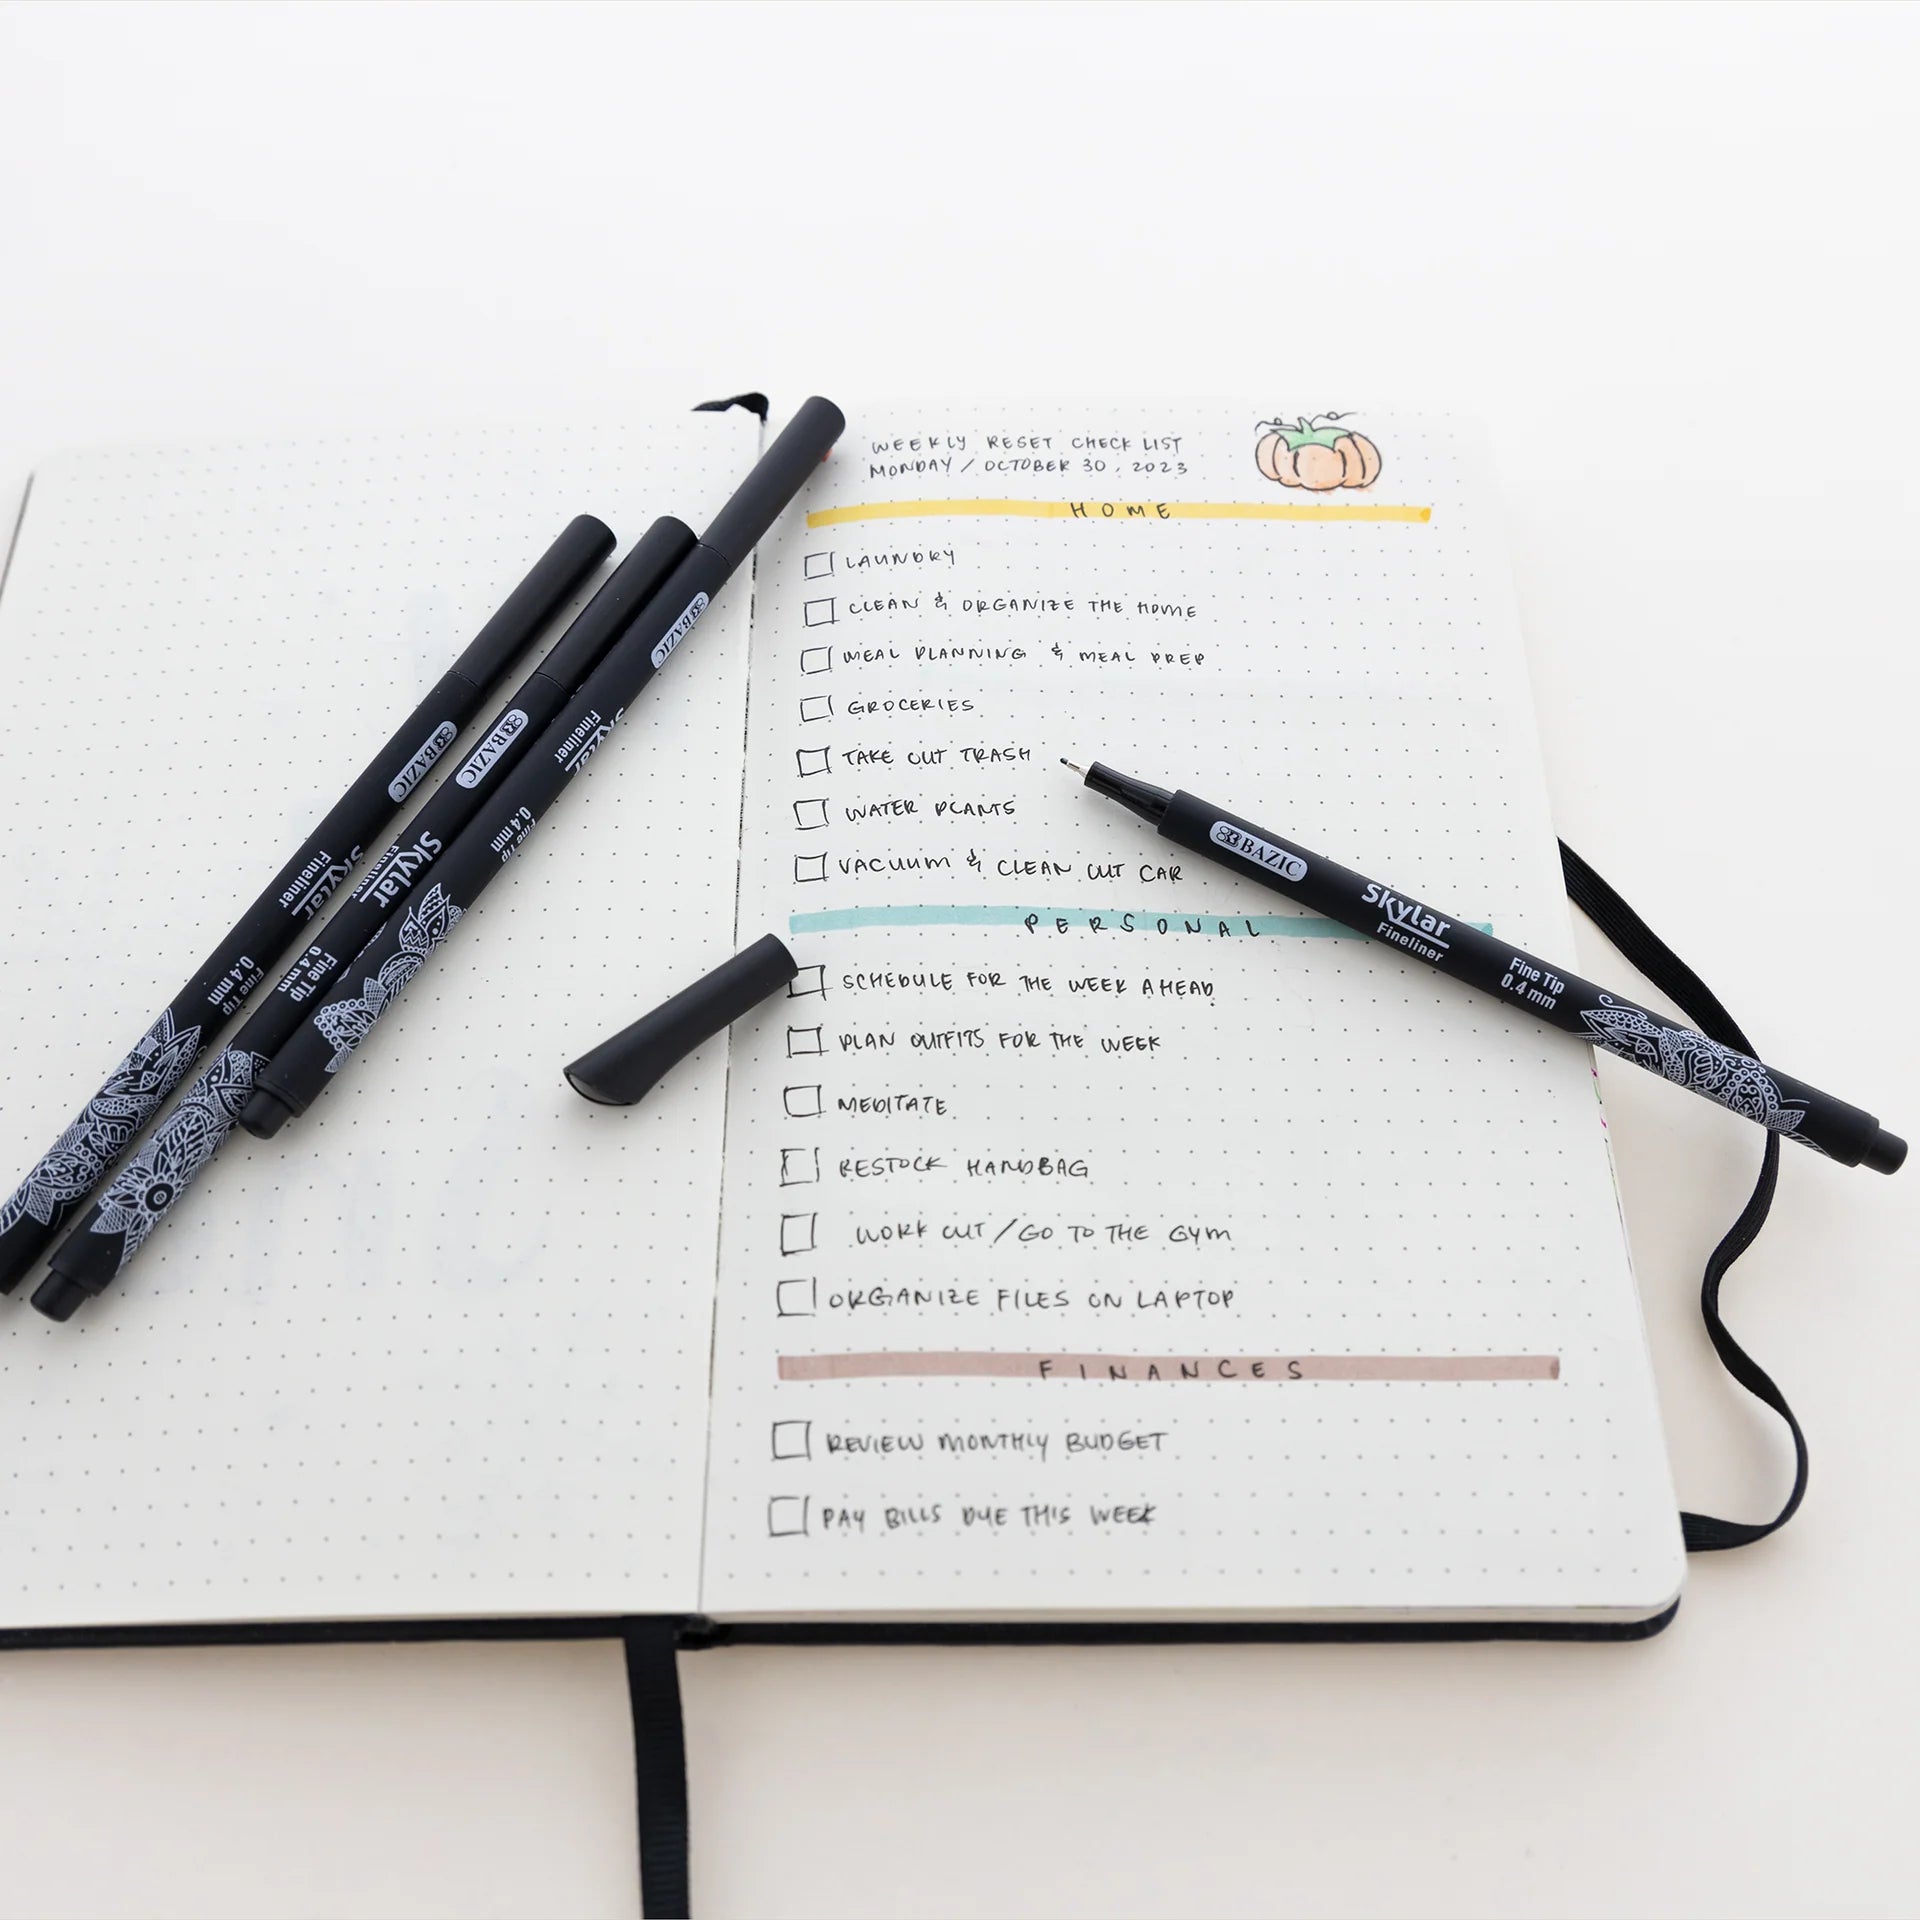 WEEKLY RESET CHECK LIST
MONDAY / OCTOBER 30, 2023
HOME
LAUNDRY
CLEAN & ORGANIZE THE HOME
MEAL PLANNING & MEAL PREP
GROCERIES
TAKE OUT TRASH
WATER PLANTS
VACUUM & CLEAN OUT CAR
PERSONAL
SCHEDULE FOR THE WEEK AHEAD
PLAN OUTFITS FOR THE WEEK
MEDITATE
RESTOCK HANDBAG
WORK OUT / GO TO THE GYM
ORGANIZE FILES ON LAPTOP
FINANCES
REVIEW MONTHLY BUDGET
PAY BILLS DUE THIS WEEK
BAZIC
Skylar
Fineliner
Fine Tip
0.4 mm
BAZIC
Skylar
Fineliner
Fine Tip
0.4 mm
BAZIC
Skylar
Fineliner
Fine Tip
0.4 mm
BAZIC
Skylar
Fineliner
Fine Tip
0.4 mm